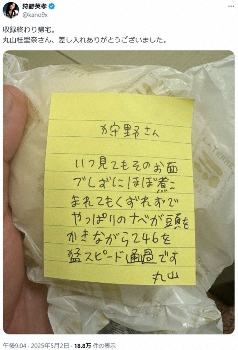 狩野英孝
@kano9x
収録終わり帰宅。
丸山桂里奈さん、差し入れありがとうございました。
狩野さん
いつ見てもそのお面
でしずにほぼ煮こ
まれてもくずれずで
やっぱりのナベが頭を
かきながら246を
猛スピード通過です
丸山
午後9:04 · 2025年5月2日 · 18.8万 件の表示